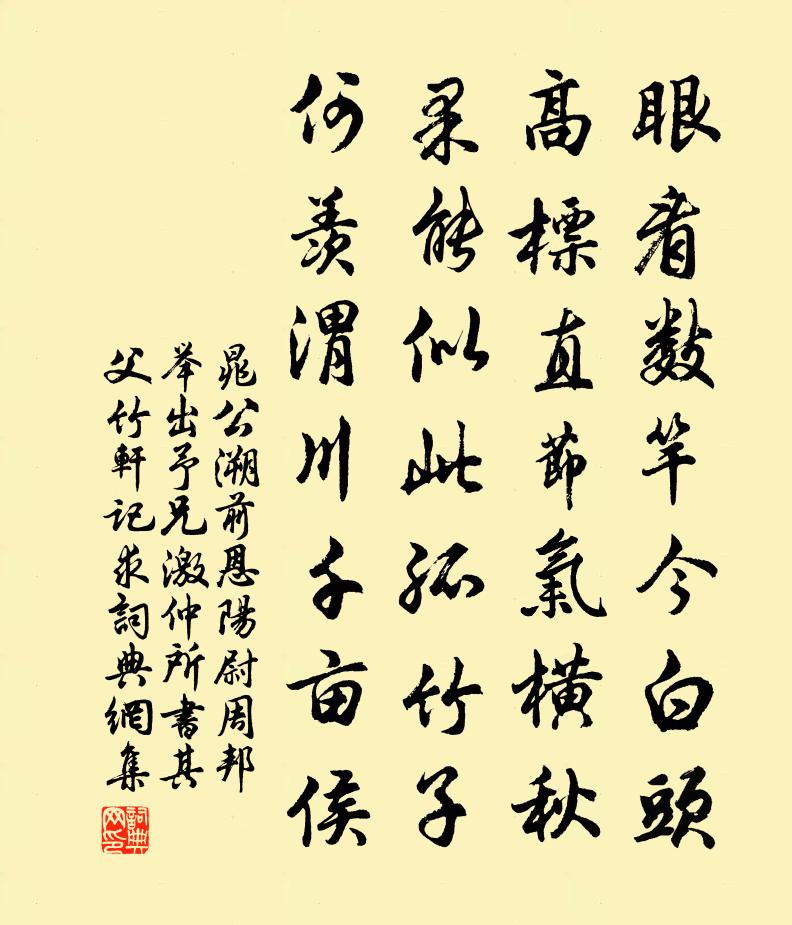 眼看數竿今白頭
高標直節氣橫秋
果能似此孤竹子
何羨渭川千亩侯
晁公溯前恩陽尉周邦
举出予兄激仲所書其
父竹軒記求詞典網集
詞典网印